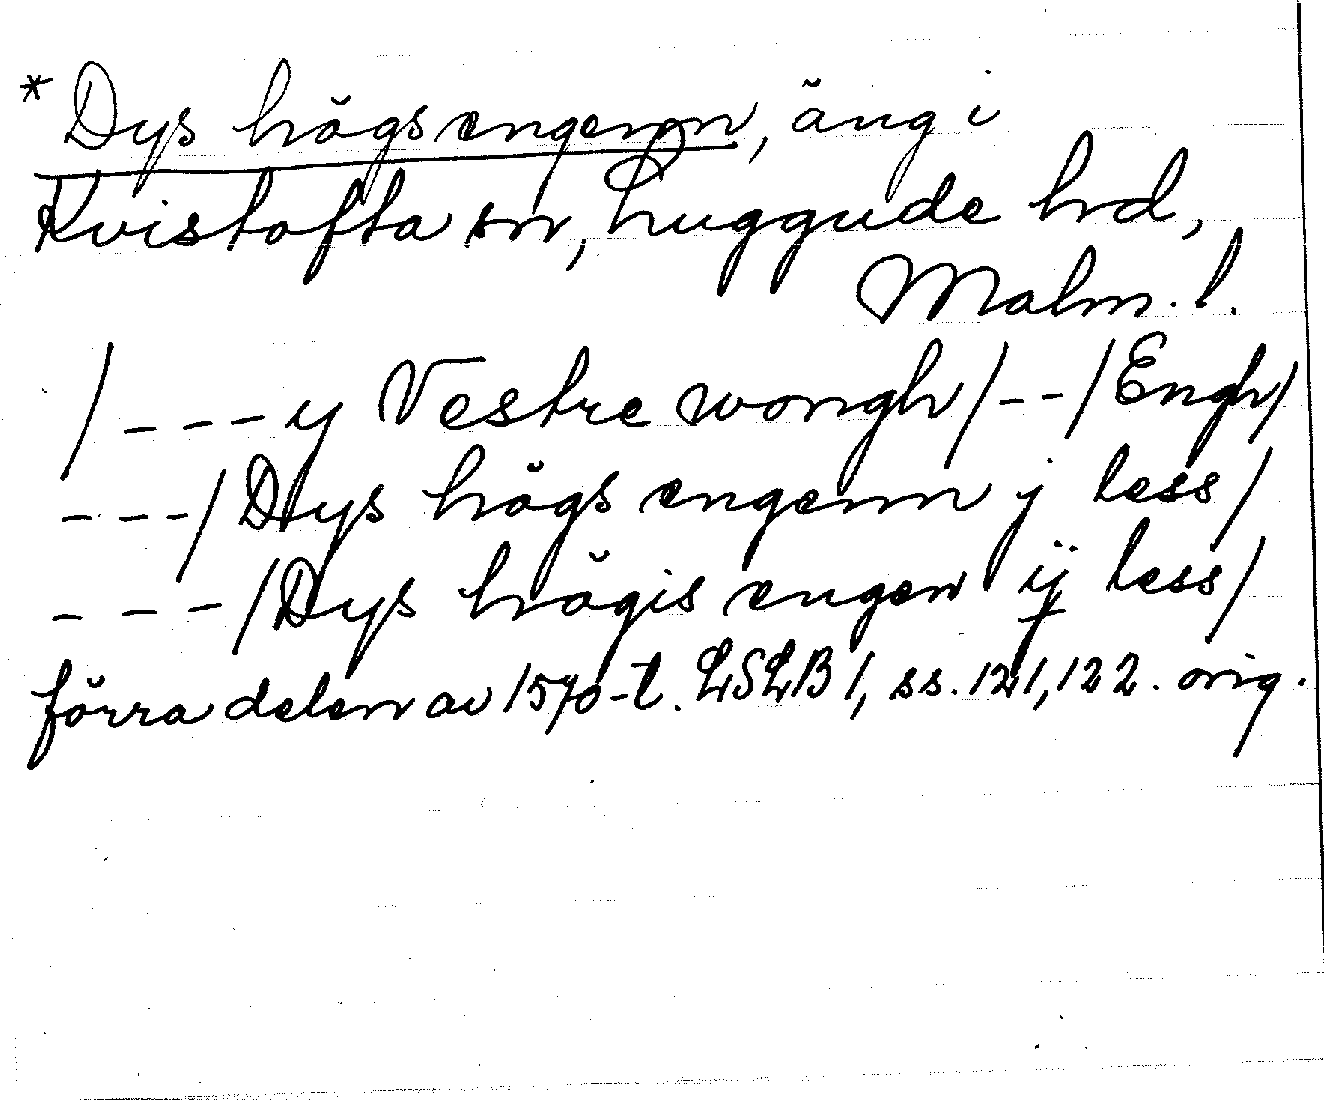 * Dys högs engenn, äng i
Kvistofta sn, Luggude hd,
Malm. l.
/ - - - y Vestre wongh / - - / Engh /
- - - / Dys högs engenn j less /
- - - / Dys högis engen ij less /
förra delen av 1570-t. LSLB 1, ss. 121, 122. orig.